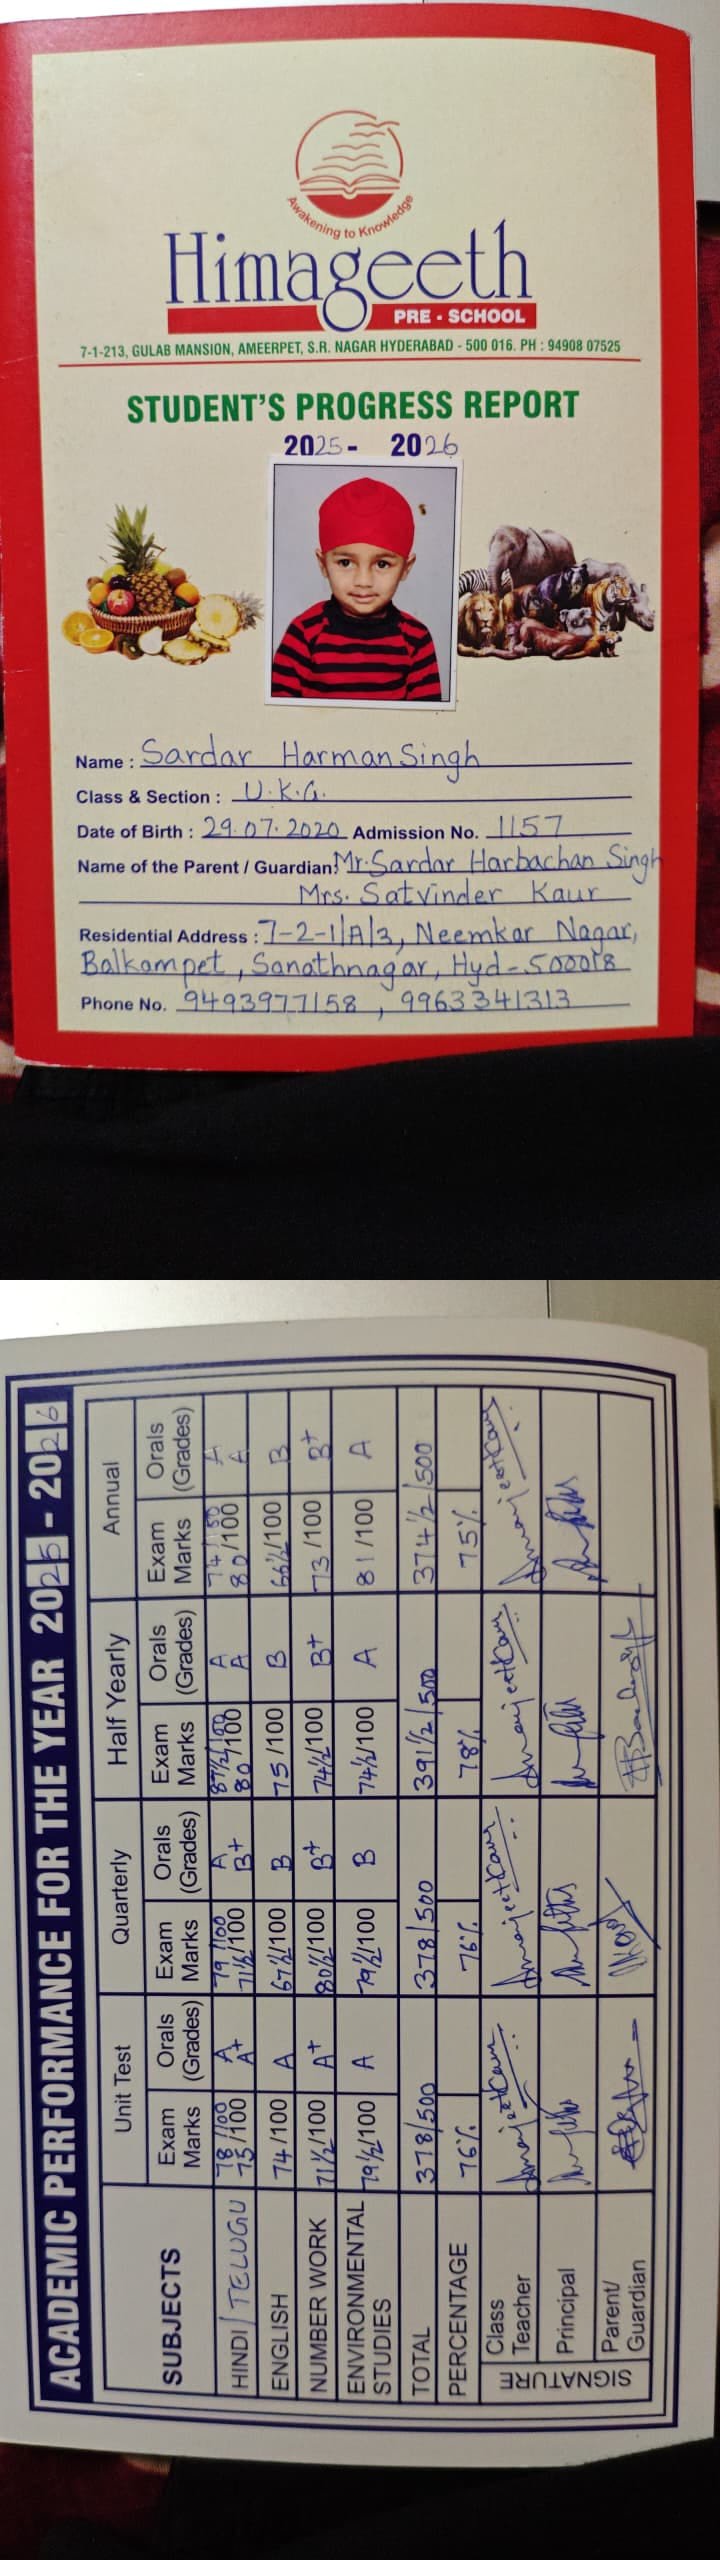 Awakening to Knowledge
Himageeth
PRE - SCHOOL
7-1-213, GULAB MANSION, AMEERPET, S.R. NAGAR HYDERABAD - 500 016. PH : 94908 07525
STUDENT'S PROGRESS REPORT
2025 - 2026
Name : Sardar Harman Singh
Class & Section : U.K.G.
Date of Birth : 29.07.2020 Admission No. 1157
Name of the Parent / Guardian: Mr. Sardar Harbachan Singh
Mrs. Satvinder Kaur
Residential Address : 7-2-1/A/3, Neemkar Nagar,
Balkampet, Sanathnagar, Hyd-500018
Phone No. 9493977158 , 9963341313
ACADEMIC PERFORMANCE FOR THE YEAR 2025 - 2026
SUBJECTS Unit Test Quarterly Half Yearly Annual
Exam Marks Orals (Grades) Exam Marks Orals (Grades) Exam Marks Orals (Grades) Exam Marks Orals (Grades)
HINDI / TELUGU 78/100 A 79/100 A 87½/100 A 74/ A
75/100 A+ 71½/100 B+ 80/100 A 80/100 A
ENGLISH 74/100 A 67½/100 B 75/100 B 66½/100 B
NUMBER WORK 71½/100 A+ 80½/100 B+ 74½/100 B+ 73/100 B+
ENVIRONMENTAL STUDIES 79½/100 A 79½/100 B 74½/100 A 81/100 A
TOTAL 378/500 378/500 391½/500 374½/500
PERCENTAGE 76% 76% 78% 75%
SIGNATURE
Class Teacher Amarjeet Kaur Amarjeet Kaur Amarjeet Kaur Amarjeet Kaur
Principal
Parent/ Guardian